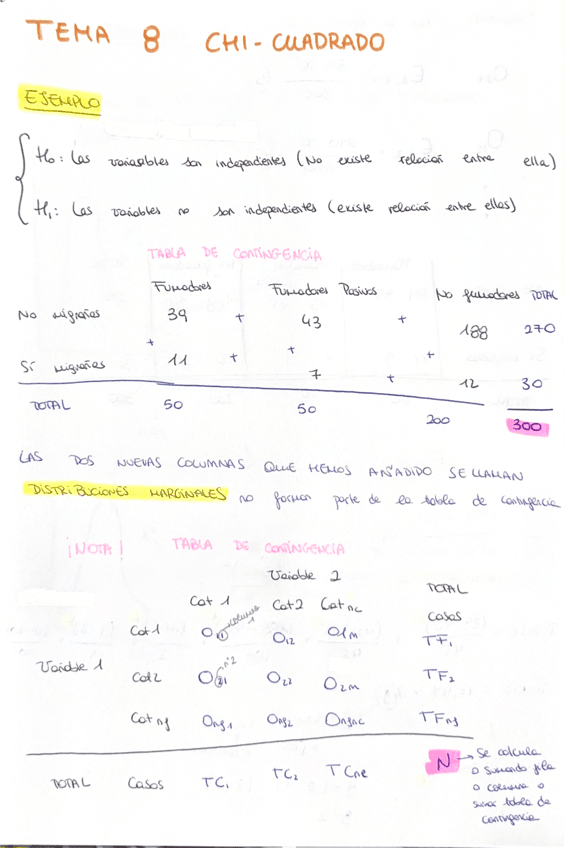 TEMA 8 CHI-CUADRADO
EJEMPLO
H0: Las variables son independientes (No existe relación entre ella)
H1: Las variables no son independientes (existe relación entre ellas)
TABLA DE CONTINGENCIA
Fumadores Fumadores Pasivos No fumadores TOTAL
No migrañas 39 + 43 + 188 270
+ + +
Sí migrañas 11 + 7 + 12 30
TOTAL 50 50 200 300
LAS DOS NUEVAS COLUMNAS QUE HEMOS AÑADIDO SE LLAMAN
DISTRIBUCIONES MARGINALES no forman parte de la tabla de contingencia
¡NOTA! TABLA DE CONTINGENCIA
Variable 2
Cat 1 Cat 2 Cat nc TOTAL casos
Cat 1 O11 columna O12 O1m TF1
Variable 1
Cat 2 O21 nº2 O22 O2m TF2
Cat nf Onf1 Onf2 Onfnc TFnf
TOTAL Casos TC1 TC2 TCnc N
→ Se calcula
o sumando fila
o columna o
sumar tabla de
contingencia